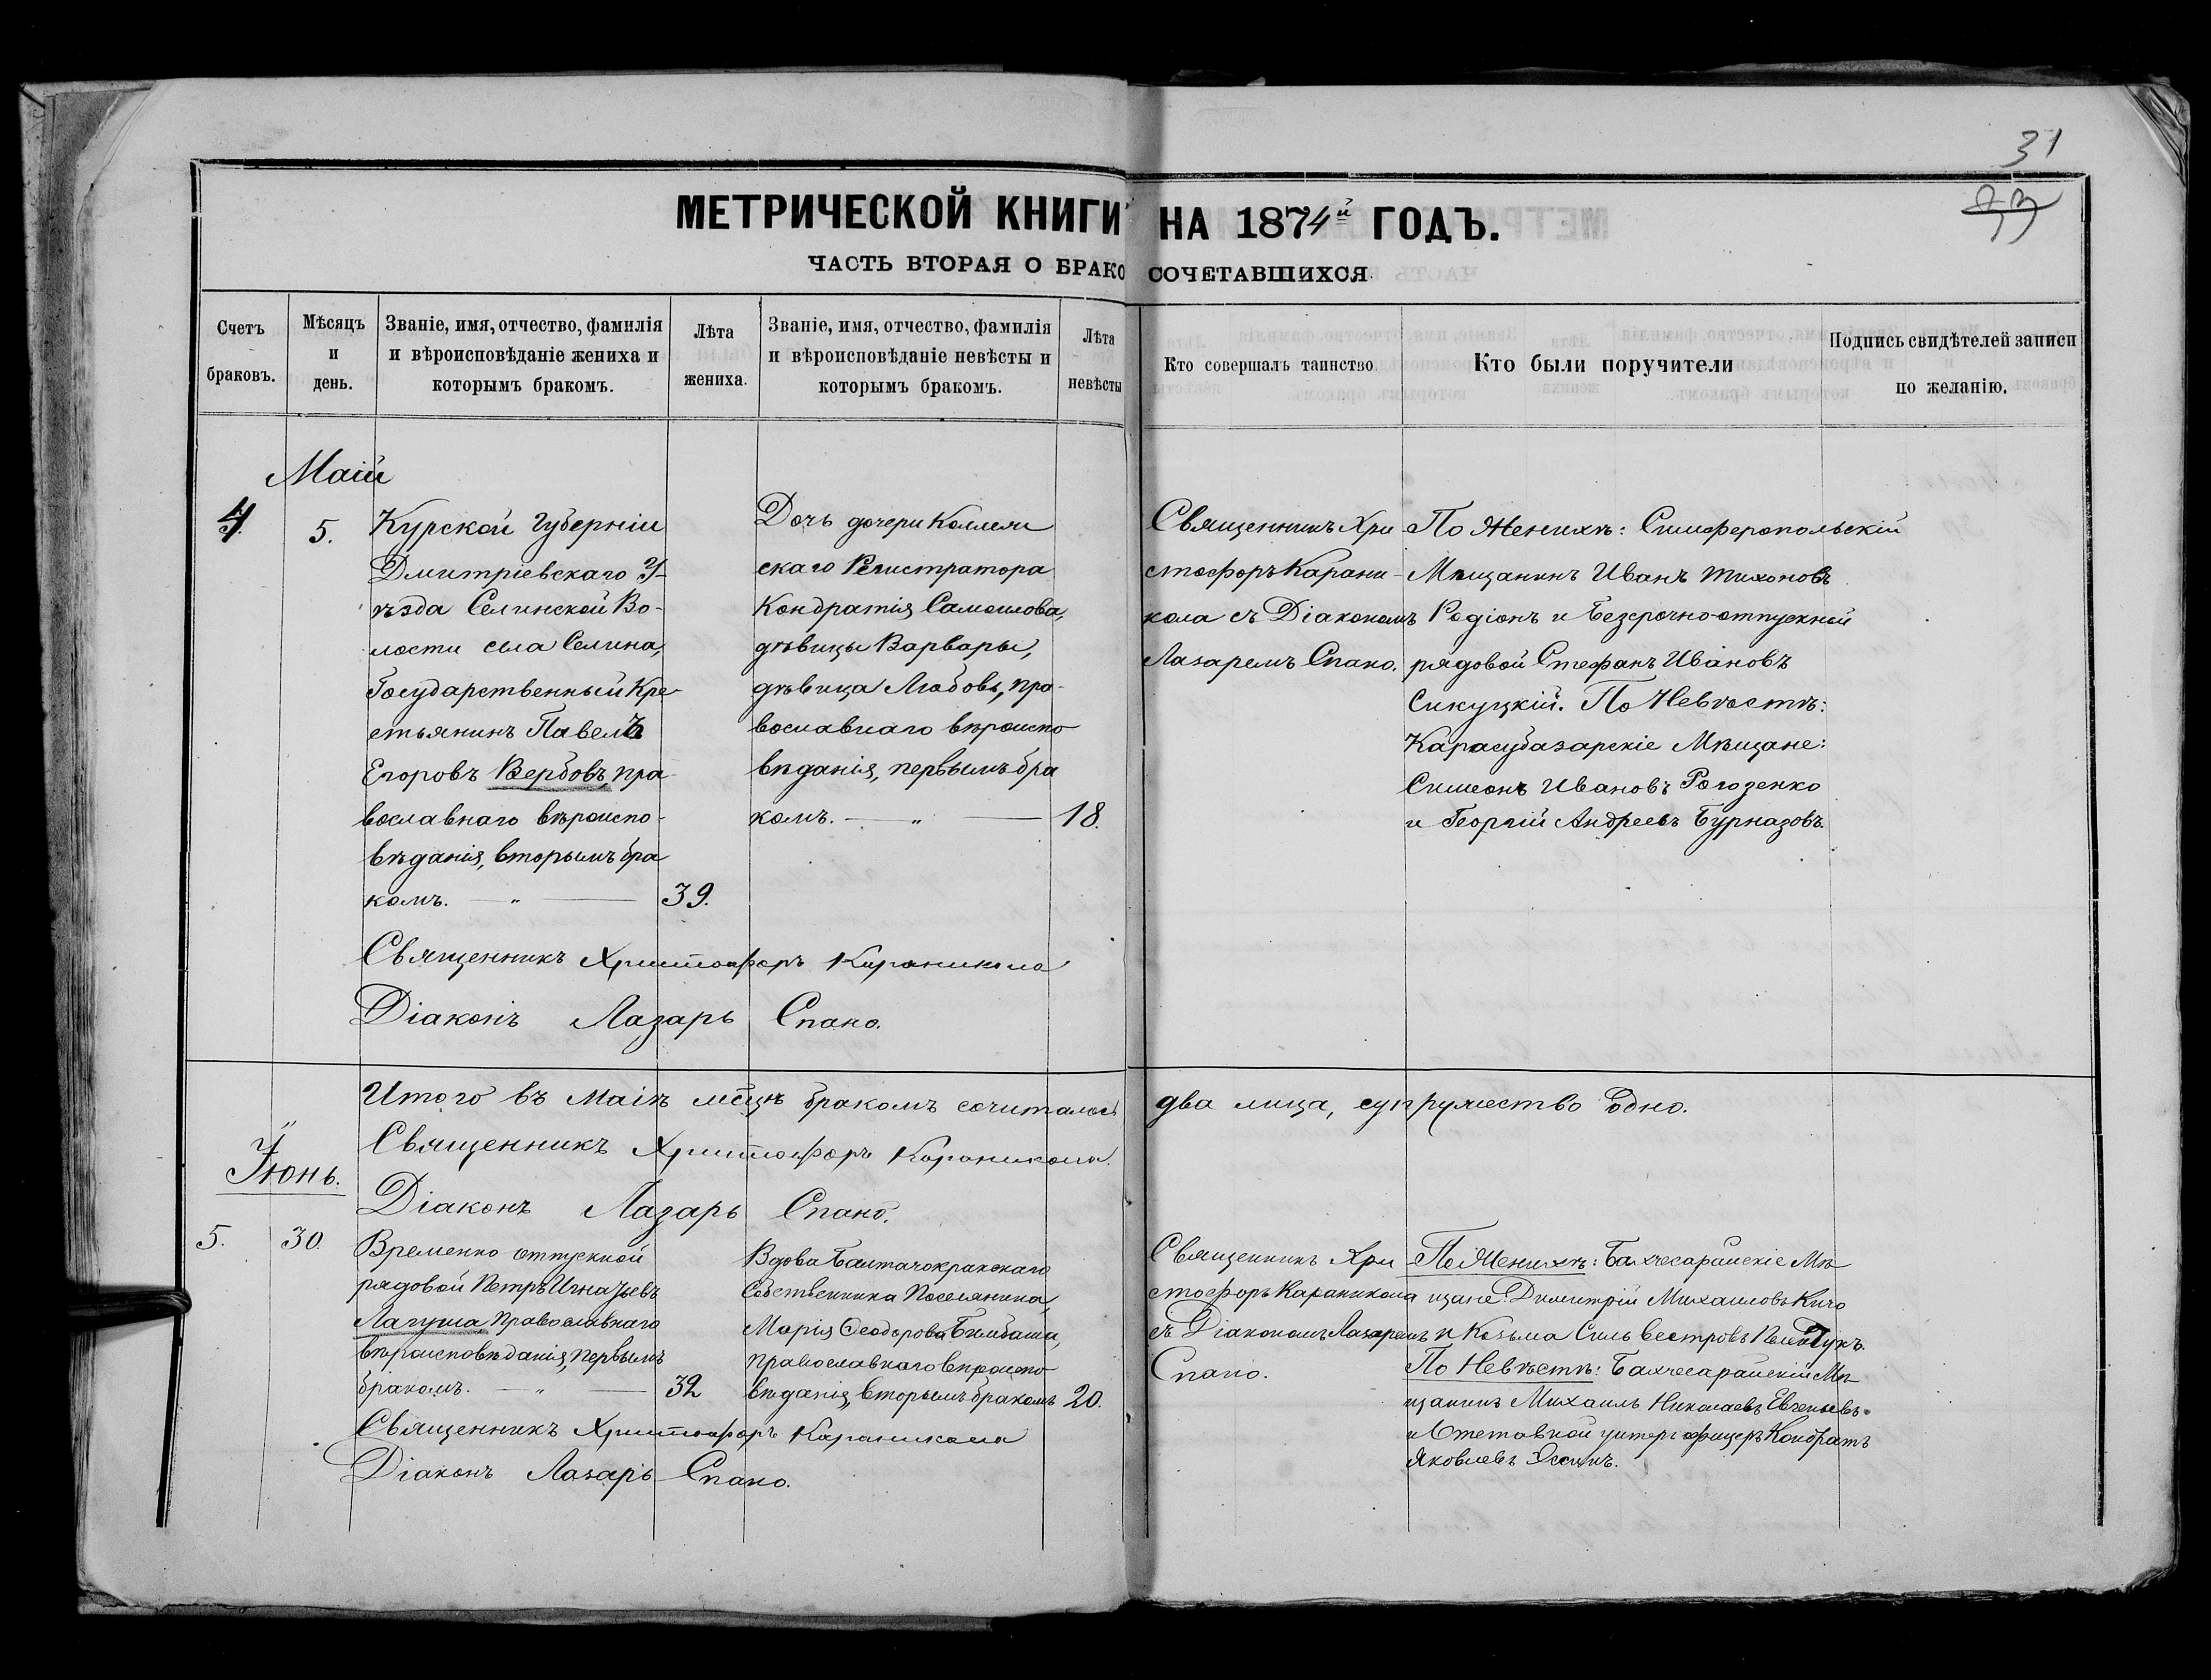 31
МЕТРИЧЕСКОЙ КНИГИ НА 1874й ГОДЪ.
ЧАСТЬ ВТОРАЯ О БРАКОСОЧЕТАВШИХСЯ
Счетъ браковъ.
Мѣсяцъ и день.
Званіе, имя, отчество, фамилія и вѣроисповѣданіе жениха и которымъ бракомъ.
Лѣта жениха.
Званіе, имя, отчество, фамилія и вѣроисповѣданіе невѣсты и которымъ бракомъ.
Лѣта невѣсты
Кто совершалъ таинство.
Кто были поручители
Подпись свидѣтелей записи по желанію.
Маій
4.
5.
Курской Губерніи
Дмитріевскаго У-
ѣзда Селинской Во-
лости села Селина,
Государственный Кре-
стьянинъ Павелъ
Егоровъ Вербовъ, пра-
вославнаго вѣроиспо-
вѣданія, вторымъ бра
комъ. — „ —
39.
Дочь дочери Коллеж
скаго Регистратора
Кондратія Самоилова,
дѣвицы Варвары,
дѣвица Любовь, пра-
вославнаго вѣроиспо
вѣданія, первымъ бра
комъ. — „ —
18.
Священникъ Хри
стофоръ Карани-
кола съ Діакономъ
Лазаремъ Спано.
По Женихѣ: Симферопольскій
Мѣщанинъ Иванъ Тихоновъ
Родіонъ и безсрочно-отпускной
рядовой Стефанъ Ивановъ
Сикуцкій. По Невѣстѣ:
Карасубазарскіе Мѣщане:
Симеонъ Ивановъ Рогозенко
и Георгій Андреевъ Бурназовъ.
Священникъ Христофоръ Караникола
Діаконъ Лазарь Спано.
Итого въ Маіѣ мѣцѣ бракомъ сочиталось два лица, супружество одно.
Священникъ Христофоръ Караникола.
Діаконъ Лазарь Спано.
Іюнь.
5.
30.
Временно отпускной
рядовой Петръ Игнатьевъ
Лагуша, Православнаго
вѣроисповѣданія, первымъ
бракомъ. — „ —
32
Вдова
Собственника Поселянина,
Марія Ѳеодорова Бимбаши,
православнаго вѣроиспо
вѣданія, вторымъ бракомъ
20.
Священникъ Хри
стофоръ Караникола
съ Діакономъ Лазаремъ
Спано.
По Женихѣ: Бахчесарайскіе Мѣ
щане: Димитрій Михаиловъ Кичо
и Козьма Сильвестровъ
По Невѣстѣ: Бахчесарайскій Мѣ
щанинъ Михаилъ Николаевъ Евгеньевъ
и Отставной унтеръ офицеръ Кондратъ
Яковлевъ
Священникъ Христофоръ Караникола
Діаконъ Лазарь Спано.